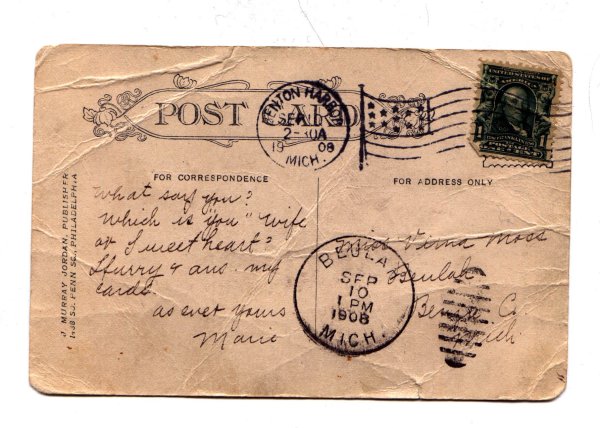 POST CARD
BENTON HARBOR
SEP 10
2-30A
1908
MICH.
UNITED STATES OF AMERICA
1
1
FOR CORRESPONDENCE
FOR ADDRESS ONLY
J. MURRAY JORDAN, PUBLISHER
PENN SQ., PHILADELPHIA
What say you?
Which is "you" wife
or Sweetheart?
Hurry & ans. my
cards.
as ever yours
Marie
BEULAH
SEP
10
1 PM
1908
MICH.
Miss Verna Moss
Beulah
Benzie Co.
Mich